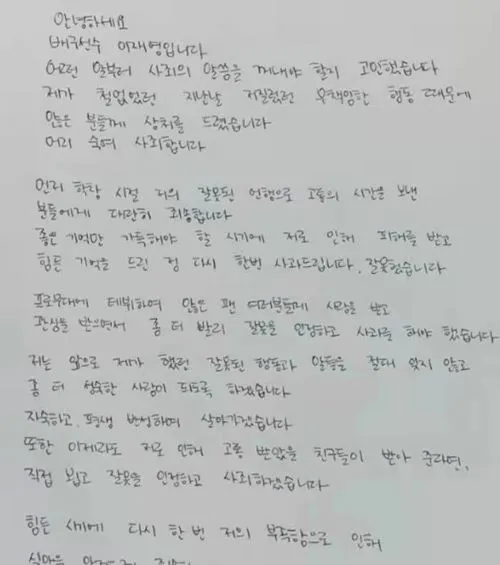 안녕하세요
배구선수 이재영입니다
어떤 말부터 사죄의 말씀을 꺼내야 할지 고민했습니다
제가 철없었던 지난날 저질렀던 무책임한 행동 때문에
많은 분들께 상처를 드렸습니다
머리 숙여 사죄합니다
먼저 학창 시절 저의 잘못된 언행으로 고통의 시간을 보낸
분들에게 대단히 죄송합니다
좋은 기억만 가득해야 할 시기에 저로 인해 피해를 받고
힘든 기억을 드린 점 다시 한번 사과드립니다. 잘못했습니다
프로무대에 데뷔하여 많은 팬 여러분들께 사랑을 받고
관심을 받으면서 좀 더 빨리 잘못을 인정하고 사과를 해야 했습니다
저는 앞으로 제가 했던 잘못된 행동과 말들을 절대 잊지 않고
좀 더 성숙한 사람이 되도록 하겠습니다
자숙하고, 평생 반성하며 살아가겠습니다
또한 이제라도 저로 인해 고통 받았을 친구들이 받아 준다면,
직접 뵙고 잘못을 인정하고 사죄하겠습니다
힘든 시기에 다시 한 번 저의 부족함으로 인해